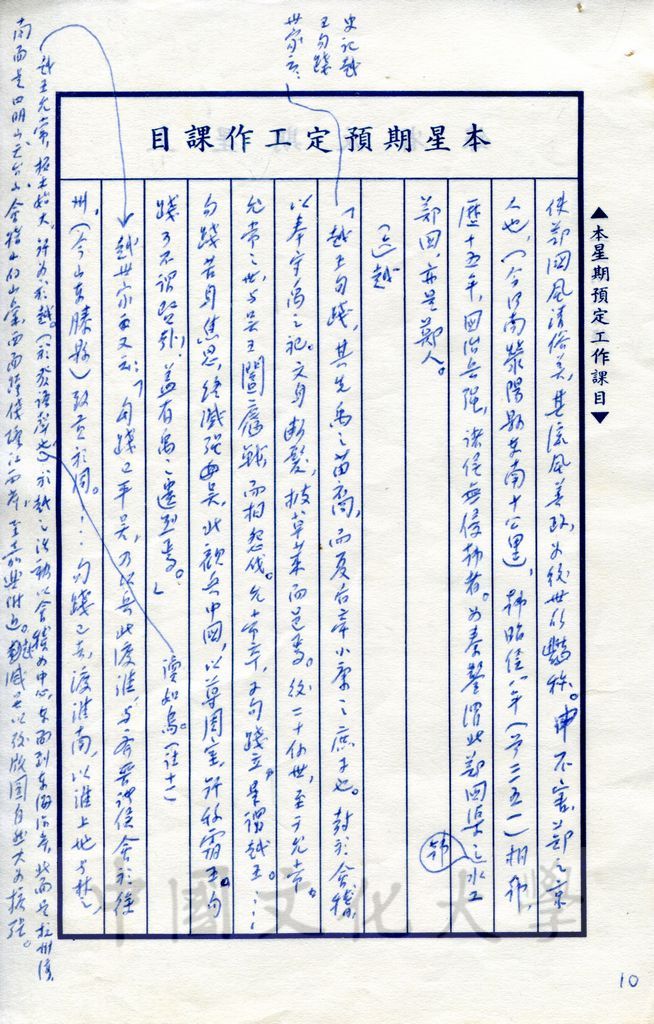 史記越
王勾踐
世家云：
本星期預定工作課目
▲本星期預定工作課目▼
使鄭國風清俗美，其流風善政，為後世所豔稱。申不害，鄭之京
人也，（今河南滎陽縣東南十公里），韓昭侯八年（前三五一）相韓，
歷十五年，國治兵強，諸侯無侵韓者。為秦鑿涇水鄭國渠之水工
鄭國，亦是鄭人。
（三）越
「越王句踐，其先禹之苗裔，而夏后帝少康之庶子也。封於會稽，
以奉守禹之祀。文身斷髮，披草萊而邑焉。後二十餘世，至于允常。
允常之世，與吳王闔廬戰而相怨伐。允常卒，子句踐立，是謂越王。……
句踐苦身焦思，終滅強吳，北觀兵中國，以尊周室，號稱霸王。句
踐可不謂賢哉！蓋有禹之遺烈焉。」
越世家又云：「句踐已平吳，乃以兵北渡淮，與齊晉諸侯會於徐
州，（今山東滕縣）致貢於周。……句踐已去，渡淮南，以淮上地與楚，
越王允常，拓土始大，號為於越。（於發語聲也）於越之活動以會稽為中心，東面到東海沿岸，北面是杭州灣，
南面是四明山、天台山、會稽山的山嶽，西面跨錢塘江兩岸，至嘉興附近。越滅吳以後版圖自然大為擴張。
中國文化大學
10